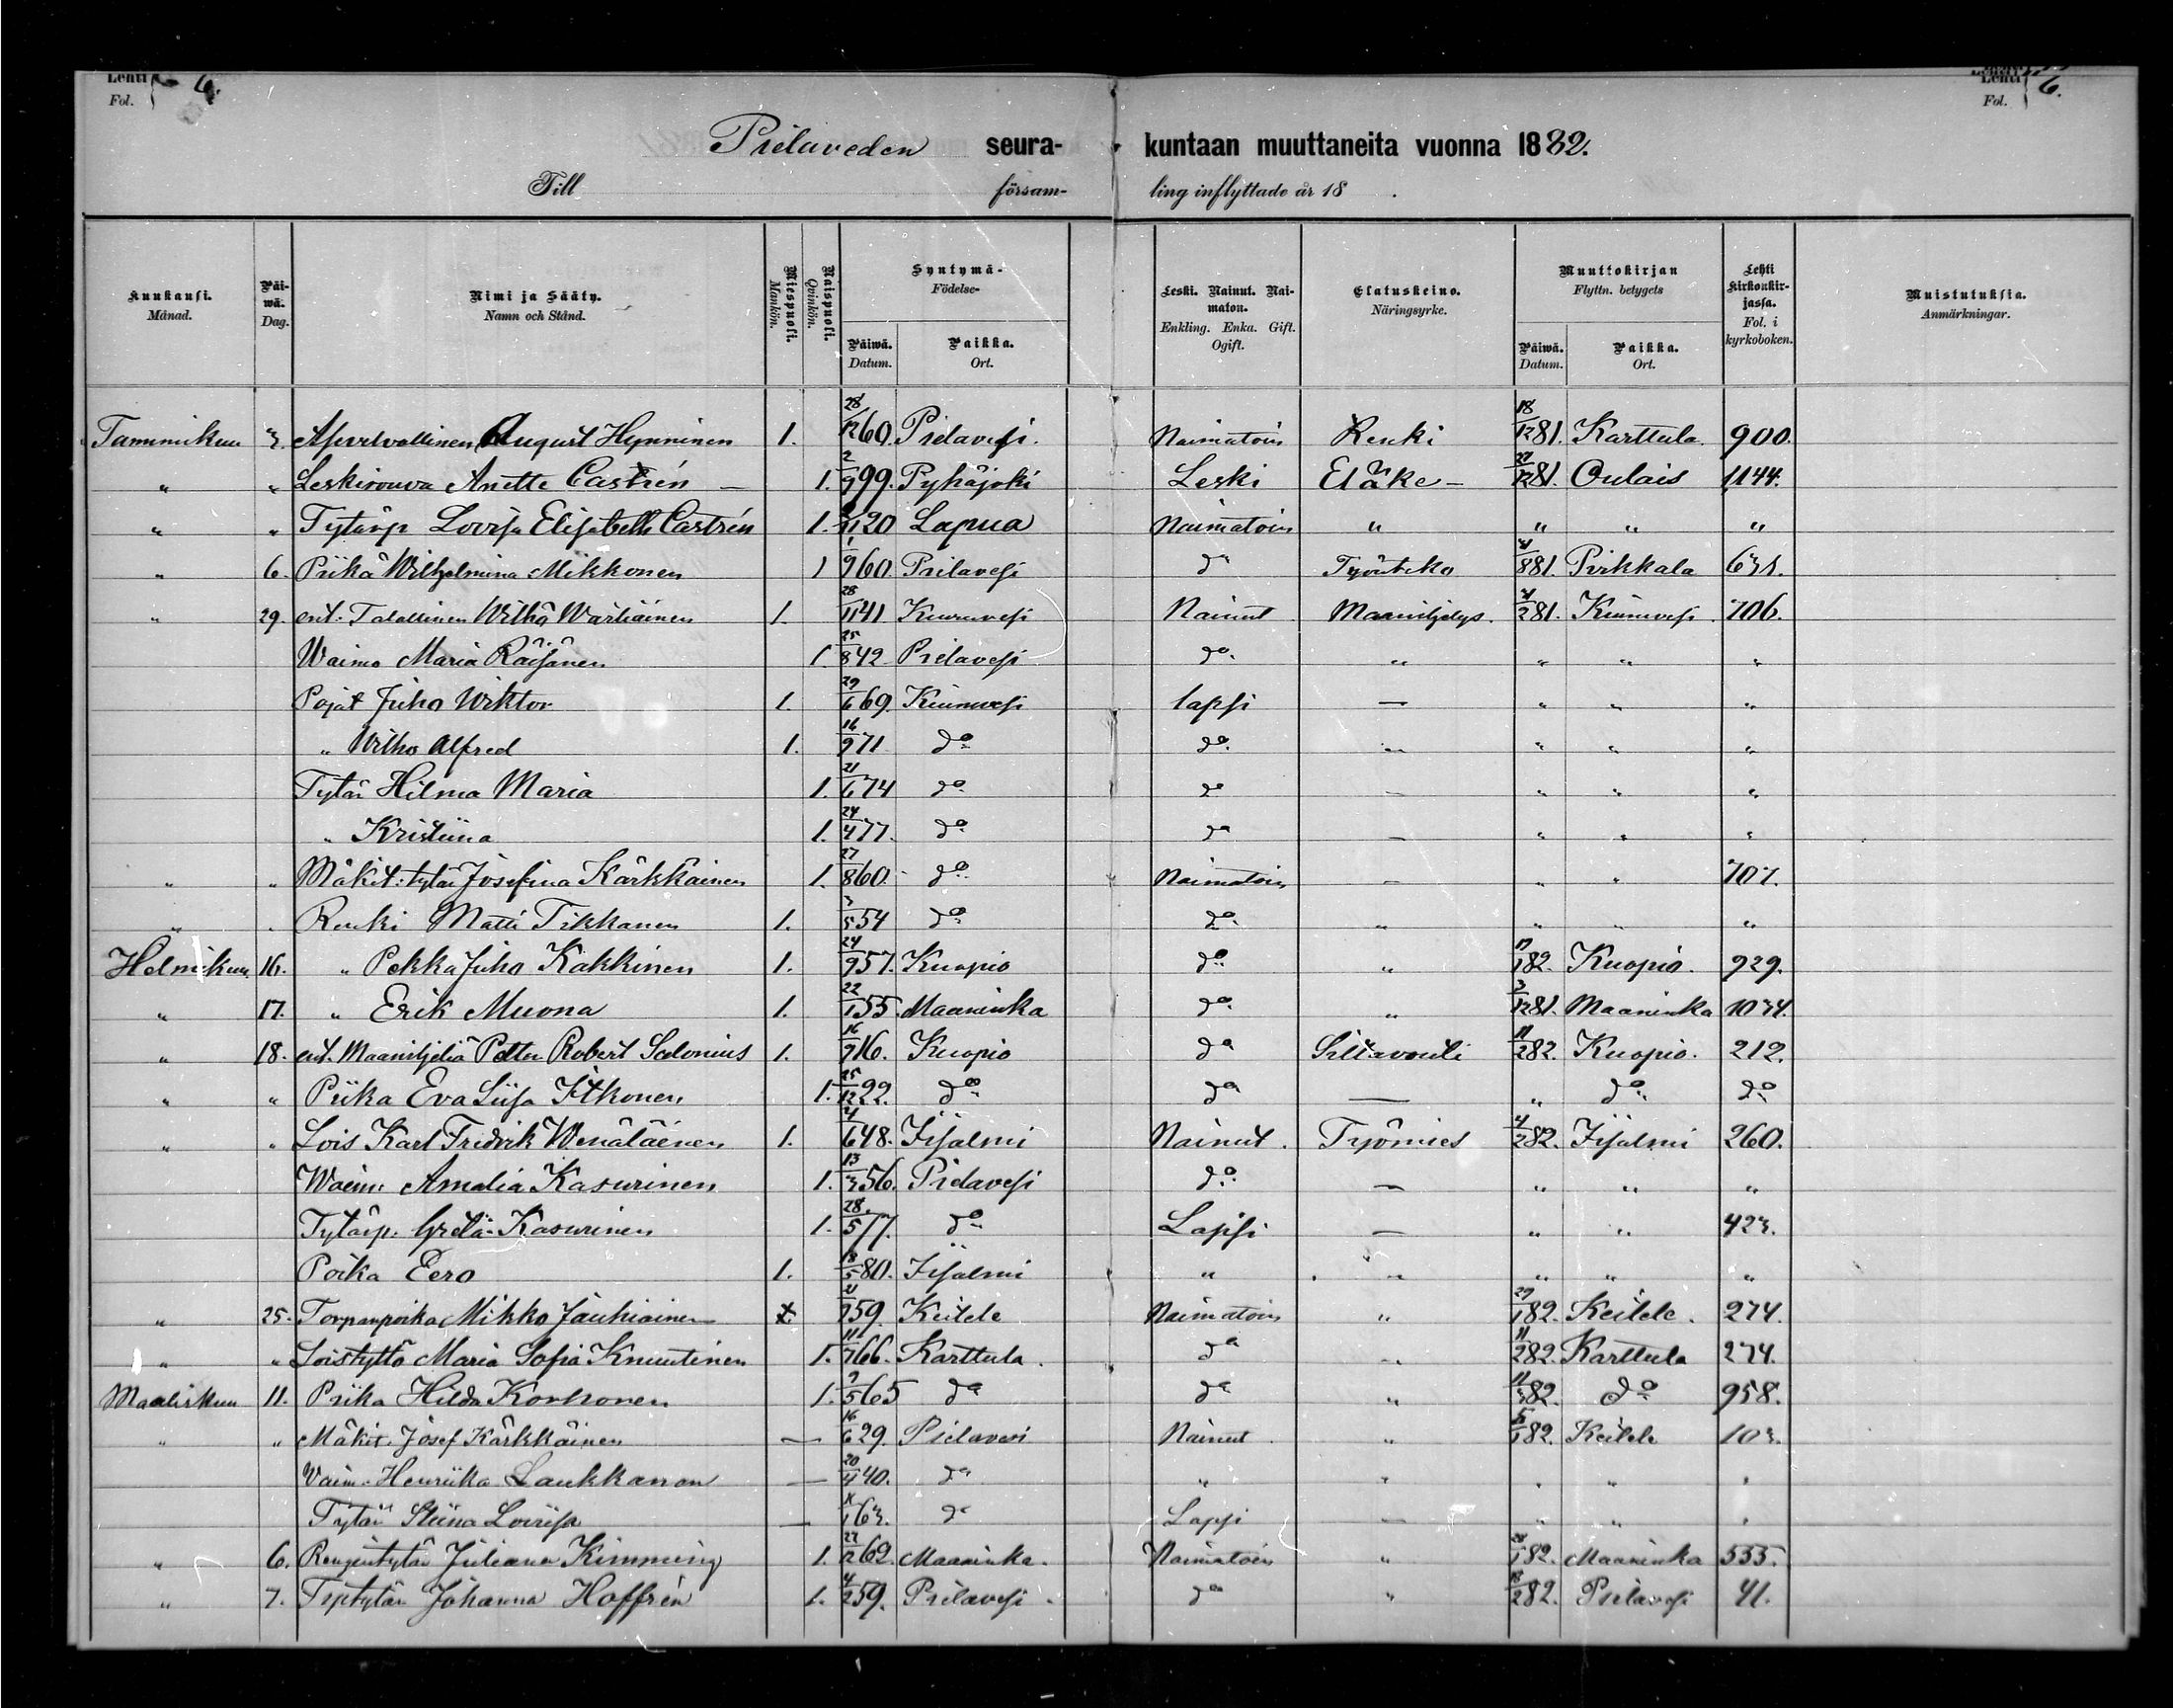 Lehti 6.
Fol.
Lehti 6.
Fol.
Pielaveden seura- kuntaan muuttaneita vuonna 1882.
Till försam- ling inflyttade år 18 .
Kuukausi. Månad.
Päiwä. Dag.
Nimi ja Sääty. Namn och Stånd.
Miespuoli. Mankön.
Naispuoli. Qvinkön.
Syntymä- Födelse-
Päiwä. Datum. Paikka. Ort.
Leski. Nainut. Naimaton. Enkling. Enka. Gift. Ogift.
Elatuskeino. Näringsyrke.
Muuttokirjan Flyttn. betygets
Päiwä. Datum. Paikka. Ort.
Lehti kirkonkirjassa. Fol. i kyrkoboken.
Muistutuksia. Anmärkningar.
Tammikuu 3. August Hynninen 1. 28/12 60. Pielavesi. Naimatoin Renki 18/12 81. Karttula. 900.
" " Leskirouva Anette Castrén — 1. 2/9 99. Pyhäjoki Leski Eläke — 27/12 81. Oulais 1144.
" " Tytärp Lovisa Elisabeth Castrén 1. 11 20 Lapua Naimatoin " " " "
" 6. Piika Wilhelmina Mikkonen 1 1/9 60. Pielavesi do 8 81. Pirkkala 631.
" 29. ent. Talollinen Wiartiainen 1. 28/11 41. Kiuruvesi Nainut Maanviljelys. 2 81. Kiuruvesi. 706.
Waimo Maria Räisänen 1. 25/8 42 Pielavesi do. " " " "
Pojat Juho Wiktor 1. 29/6 69. Kiuruvesi lapsi — " " "
" Wilho Alfred 1. 16/9 71 do do. — " " "
Tytär Hilma Maria 1. 21/6 74 do do — " " "
" Kristiina 1. 24/4 77. do do — " " "
" " Mäkit: tytär Josefina Kärkkäinen 1. 27/8 60. do Naimatoin — " " 707.
" " Renki Matti Tikkanen 1. 3/5 54 do do. " " " "
Helmikuu 16. " Pekka Juho Kakkinen 1. 24/9 57. Kuopio do " 17/1 82. Kuopio. 929.
" 17. " Erik Muona 1. 22/1 55. Maaninka do " 3/12 81. Maaninka 1034.
" 18. ent. Maanviljeliä Petter Robert Salonius 1. 16/9 16. Kuopio do Siltavouti 11/2 82. Kuopio. 212.
" " Piika Eva Liisa Itkonen 1. 25/12 22. do do — " do do
" " Lois Karl Fredrik Wenäläinen 1. 4/6 48. Iisalmi Nainut. Työmies 4/2 82. Iisalmi 260.
Waim. Amalia Kasurinen 1. 13/3 56. Pielavesi do. — " " "
Tytärp. Greta Kasurinen 1. 28/5 77. do Lapsi — " " 423.
Poika Eero 1. 18/5 80. Iisalmi " " " " "
" 25. Torpanpoika Mikko Jauhiainen 59. Keitele Naimatoin " 29/1 82. Keitele. 274.
" " Loistyttö Maria Sofia Knuutinen 1. 11/7 66. Karttula. do " 11/2 82. Karttula 274.
Maaliskuu 11. Piika Hilda Korhonen 1. 7/5 65 do do " 11/3 82. do 958.
" " Mäkit. Josef Kärkkäinen — 16/6 29. Pielavesi Nainut " 5/1 82. Keitele 103.
Vaim. Henriika Laukkanen — 20/4 40. do " " " " "
Tytär Stiina Loviisa — 63. do Lapsi — " " "
" 6. Rengintytär Juliana Kimming 1. 22/2 62. Maaninka. Naimatoin " 28/1 82. Maaninka 555.
" 7. Johanna Hoffrén 1. 4/2 59. Pielavesi. do " 18/2 82. Pielavesi 41.